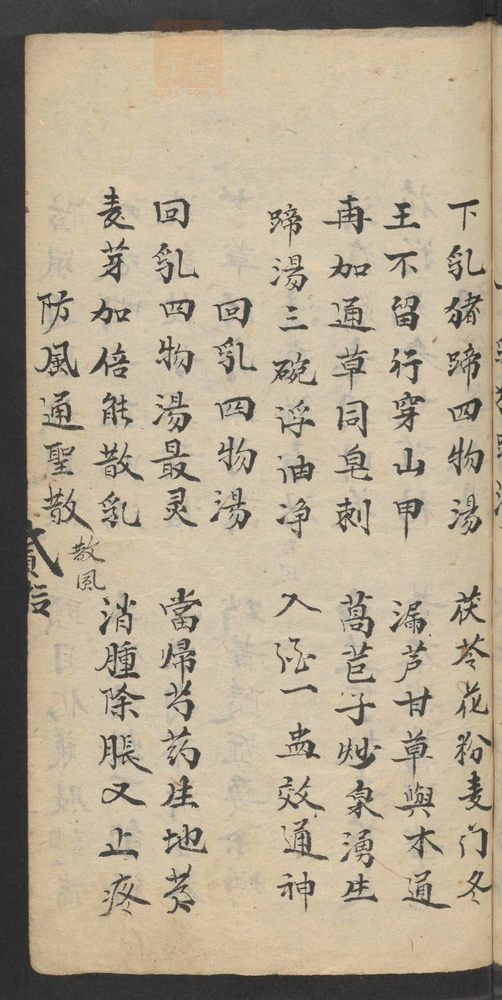 下乳猪蹄四物湯 茯苓花粉麦门冬
王不留行穿山甲 漏芦甘草與木通
再加通草同皂刺 萵苣子炒泉湧生
蹄湯三碗浮油净 入酒一盅效通神
回乳四物湯
回乳四物湯最灵 當帰芍药生地芎
麦芽加倍能散乳 消腫除脹又止疼
防風通聖散 散風
貳拾